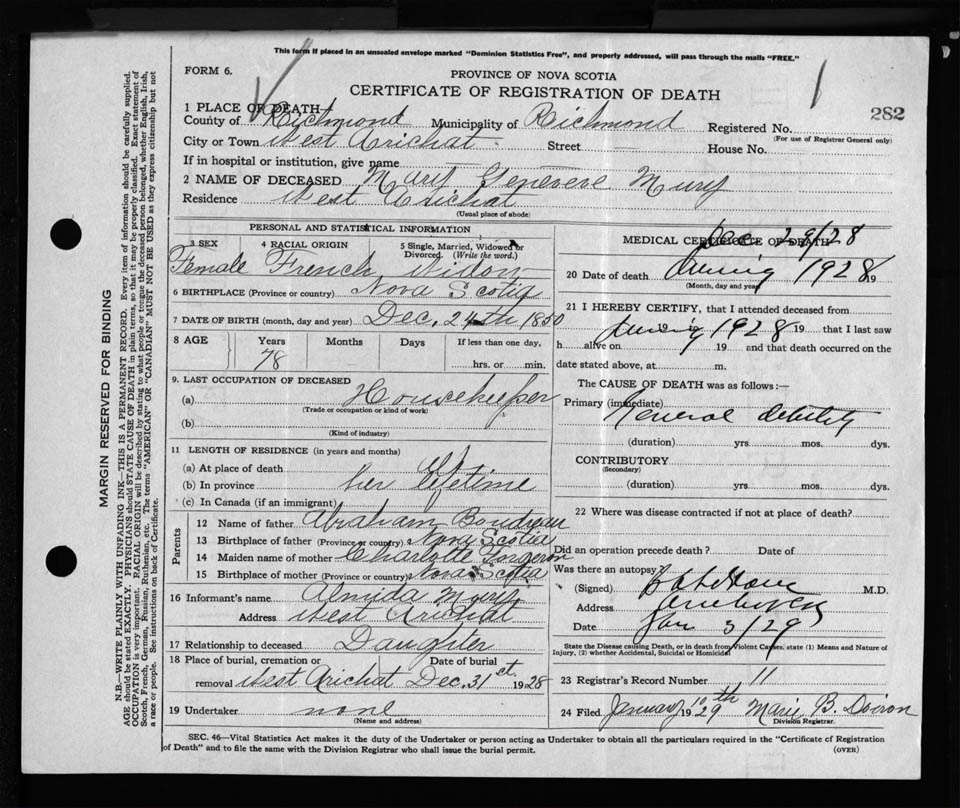 This form if placed in an unsealed envelope marked "Dominion Statistics Free", and properly addressed, will pass through the mails "FREE."
FORM 6.
PROVINCE OF NOVA SCOTIA
CERTIFICATE OF REGISTRATION OF DEATH
1
282
1 PLACE OF DEATH
County of Richmond Municipality of Richmond Registered No.
(For use of Registrar General only)
City or Town West Arichat Street House No.
If in hospital or institution, give name
2 NAME OF DECEASED Mary Genevere Mury
Residence West Arichat
(Usual place of abode)
PERSONAL AND STATISTICAL INFORMATION
3 SEX 4 RACIAL ORIGIN 5 Single, Married, Widowed or Divorced. (Write the word.)
Female French Widow
6 BIRTHPLACE (Province or country) Nova Scotia
7 DATE OF BIRTH (month, day and year) Dec. 24th 1850
8 AGE Years Months Days If less than one day,
78 hrs. or min.
9. LAST OCCUPATION OF DECEASED
(a) Housekeeper
(Trade or occupation or kind of work)
(b)
(Kind of industry)
11 LENGTH OF RESIDENCE (in years and months)
(a) At place of death
(b) In province her lifetime
(c) In Canada (if an immigrant)
Parents
12 Name of father Abraham Boudreau
13 Birthplace of father (Province or country) Nova Scotia
14 Maiden name of mother Charlotte Forgeron
15 Birthplace of mother (Province or country) Nova Scotia
16 Informant's name Almida Mury
Address West Arichat
17 Relationship to deceased Daughter
18 Place of burial, cremation or removal West Arichat Date of burial Dec. 31st. 1928
19 Undertaker none
(Name and address)
MEDICAL CERTIFICATE OF DEATH
Dec 29/28
20 Date of death 1928 19
(Month, day and year)
21 I HEREBY CERTIFY, that I attended deceased from
1928 19 that I last saw
h alive on 19 and that death occurred on the
date stated above, at m.
The CAUSE OF DEATH was as follows:—
Primary (immediate) General debility
(duration) yrs. mos. dys.
CONTRIBUTORY
(Secondary)
(duration) yrs. mos. dys.
22 Where was disease contracted if not at place of death?
Did an operation precede death? Date of
Was there an autopsy?
(Signed) M.D.
Address
Date Jan 3/29
State the Disease causing Death, or in death from Violent Causes, state (1) Means and Nature of Injury, (2) whether Accidental, Suicidal or Homicidal
23 Registrar's Record Number 11
24 Filed January 10th 1929 Marie B. Doiron
Division Registrar.
SEC. 46—Vital Statistics Act makes it the duty of the Undertaker or person acting as Undertaker to obtain all the particulars required in the "Certificate of Registration
of Death" and to file the same with the Division Registrar who shall issue the burial permit.
(OVER)
MARGIN RESERVED FOR BINDING
N.B.—WRITE PLAINLY WITH UNFADING INK—THIS IS A PERMANENT RECORD. Every item of information should be carefully supplied.
AGE should be stated EXACTLY. PHYSICIANS should STATE CAUSE OF DEATH in plain terms, so that it may be properly classified. Exact statement of
OCCUPATION is very important. RACIAL ORIGIN will be described by stating to what people or tongue the deceased person belonged, whether English, Irish,
Scotch, French, German, Russian, Ruthenian, etc. The terms "AMERICAN" or "CANADIAN" MUST NOT BE USED as they express citizenship but not
a race or people. See instructions on back of Certificate.